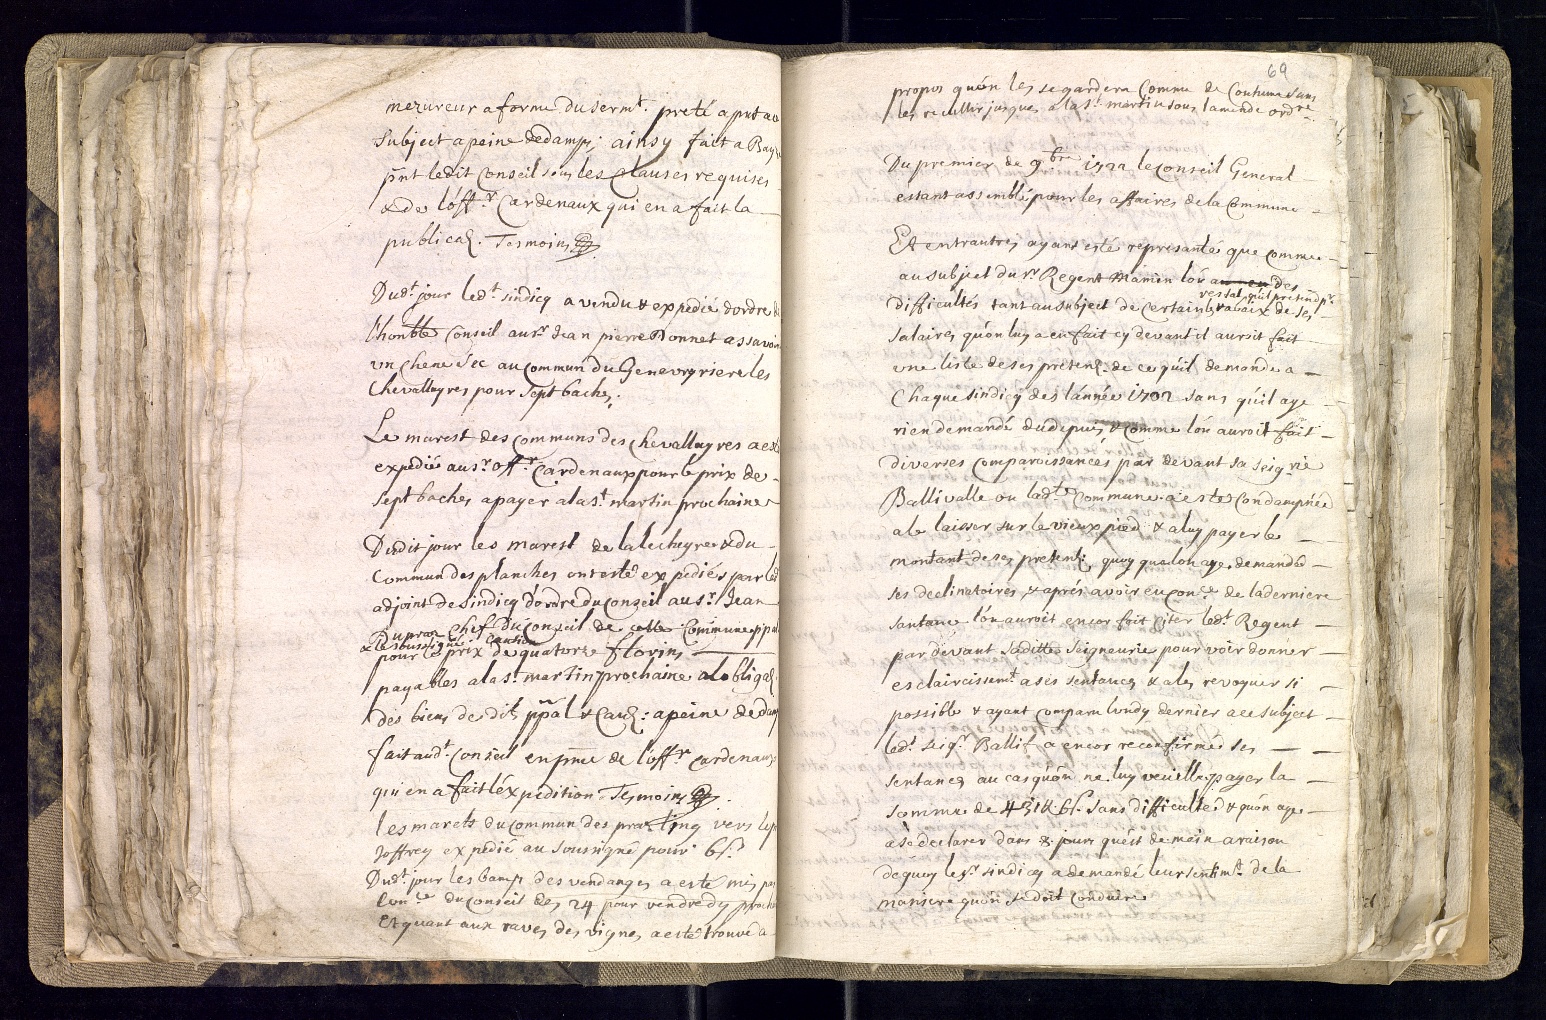 mezureur a forme du sermt. preté a pnt au
subject a peine de damps; ainsy fait a Bay
pnt ledit Conseil sous les Clauses requises
& de loffr. Cardenaux qui en a fait la
publicaõn. Tesmoins
Dudt. jour ledt. sindicq a vendu & expedié dordre d
lhonble Conseil au sr. Jean pierre Bonnet assavoir
un chene sec au commun du Genevry riere les
Chevalleyres pour sept baches.
Le marest des communs des Chevalleyres a est
expedié au sr. offr. Cardenaux pour le prix de
sept baches a payer a la st. martin prochaine
Dudit jour les marest de la lecheyre & du
Commun des planches ont esté expediés par led
adjoint de sindicq dordre du Conseil au sr. Jean
Dupraz Chef du Conseil de cette Commune ppal
& le soussigné caution
pour le prix de quatorze florins
payables a la st. martin prochaine a lobligaõn
des biens de dits ppal & Cauõn: a peine de dam
fait audt. Conseil en pnce de loffr. Cardenaux
qui en a fait lexpedition. Tesmoins
les marets du commun des praz vers les
Joffrey expedié au soussigné pour 6 s.
Dudt. jour les bamp des vendanges a esté mis par
du Conseil des 24 pour vendredy prochain
Et quant aux raves des vignes a esté trouvé a
69
propos quon les se gardera Comme de Coutume sans
les recullir jusques a la st. martin sous lamende ordre
Du premier de 9bre 1722 le Conseil General
estant assemblé pour les affaires de la Commune
Et entrautres ayant esté representé que comme
au subject du sr. Regent Mamin lon a eu des
restat quil pretend pr.
difficultés tant au subject de certain travaix de ses
salaires quon luy a eu fait cy devant il auroit fait
une liste de ses pretenõn. de ce quil demande a
Chaque sindicq des lannée 1702 sans quil aye
rien demandé du depuis & comme lon auroit fait
diverses comparoissances par devant sa seigrie
Ballivalle ou ladte Commune a este Condampnée
a le laisser sur le vieux pied & a luy payer le
montant de ses pretenõn quoy quelon aye demandé
ses declinatoires & aprés avoir eu conce de la derniere
santance lon auroit encor fait citer ledt. Regent
par devant saditte seigneurie pour voir donner
esclaircissemt. a ses sentances & a les revoquer si
possible & ayant comparu lundy dernier a ce subject
ledt. seigr. Ballif a encor reconfirmé ses
sentances au cas quon ne luy veuille payer la
somme de 431 fl. 6 s. sans difficulté & quon aye
a se declarer dans 8 jours quest demain a raison
dequoy le sr. sindicq a demandé leur sentimt. de la
maniere quon se doit conduire